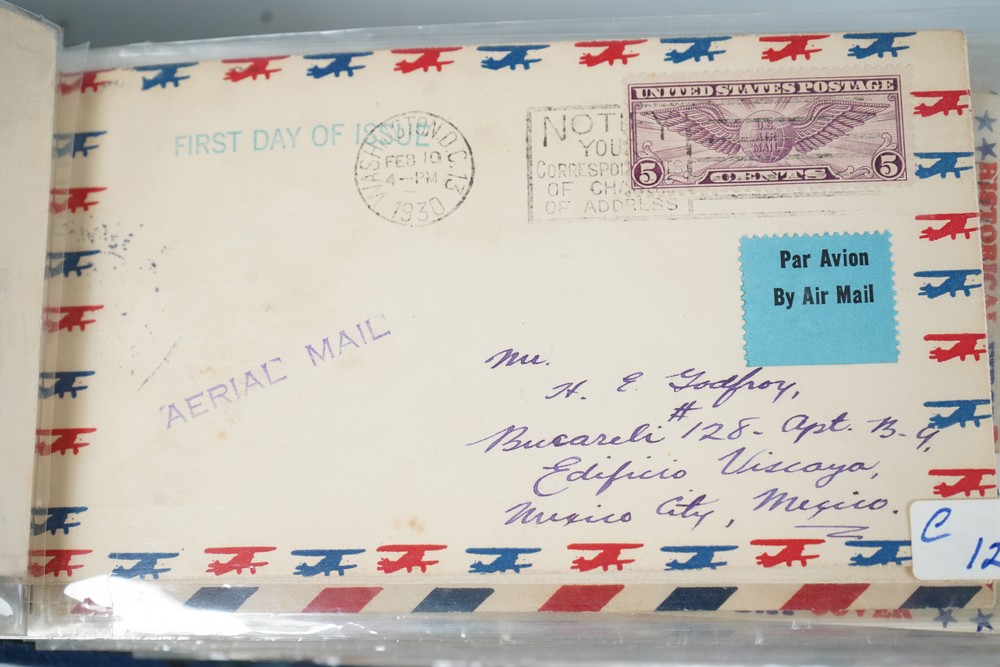 FIRST DAY OF ISSUE
WASHINGTON D.C. 13
FEB 10
4-PM
1930
NOTI
YOU
CORRESPO
OF CHA
OF ADDRESS
UNITED STATES POSTAGE
AIR
MAIL
5 CENTS 5
Par Avion
By Air Mail
AERIAL MAIL
Mr.
H. E. Godfroy,
Bucareli #128- Apt. B-9,
Edificio Viscaya,
Mexico City, Mexico.
C
12
HISTORICAL
COVER